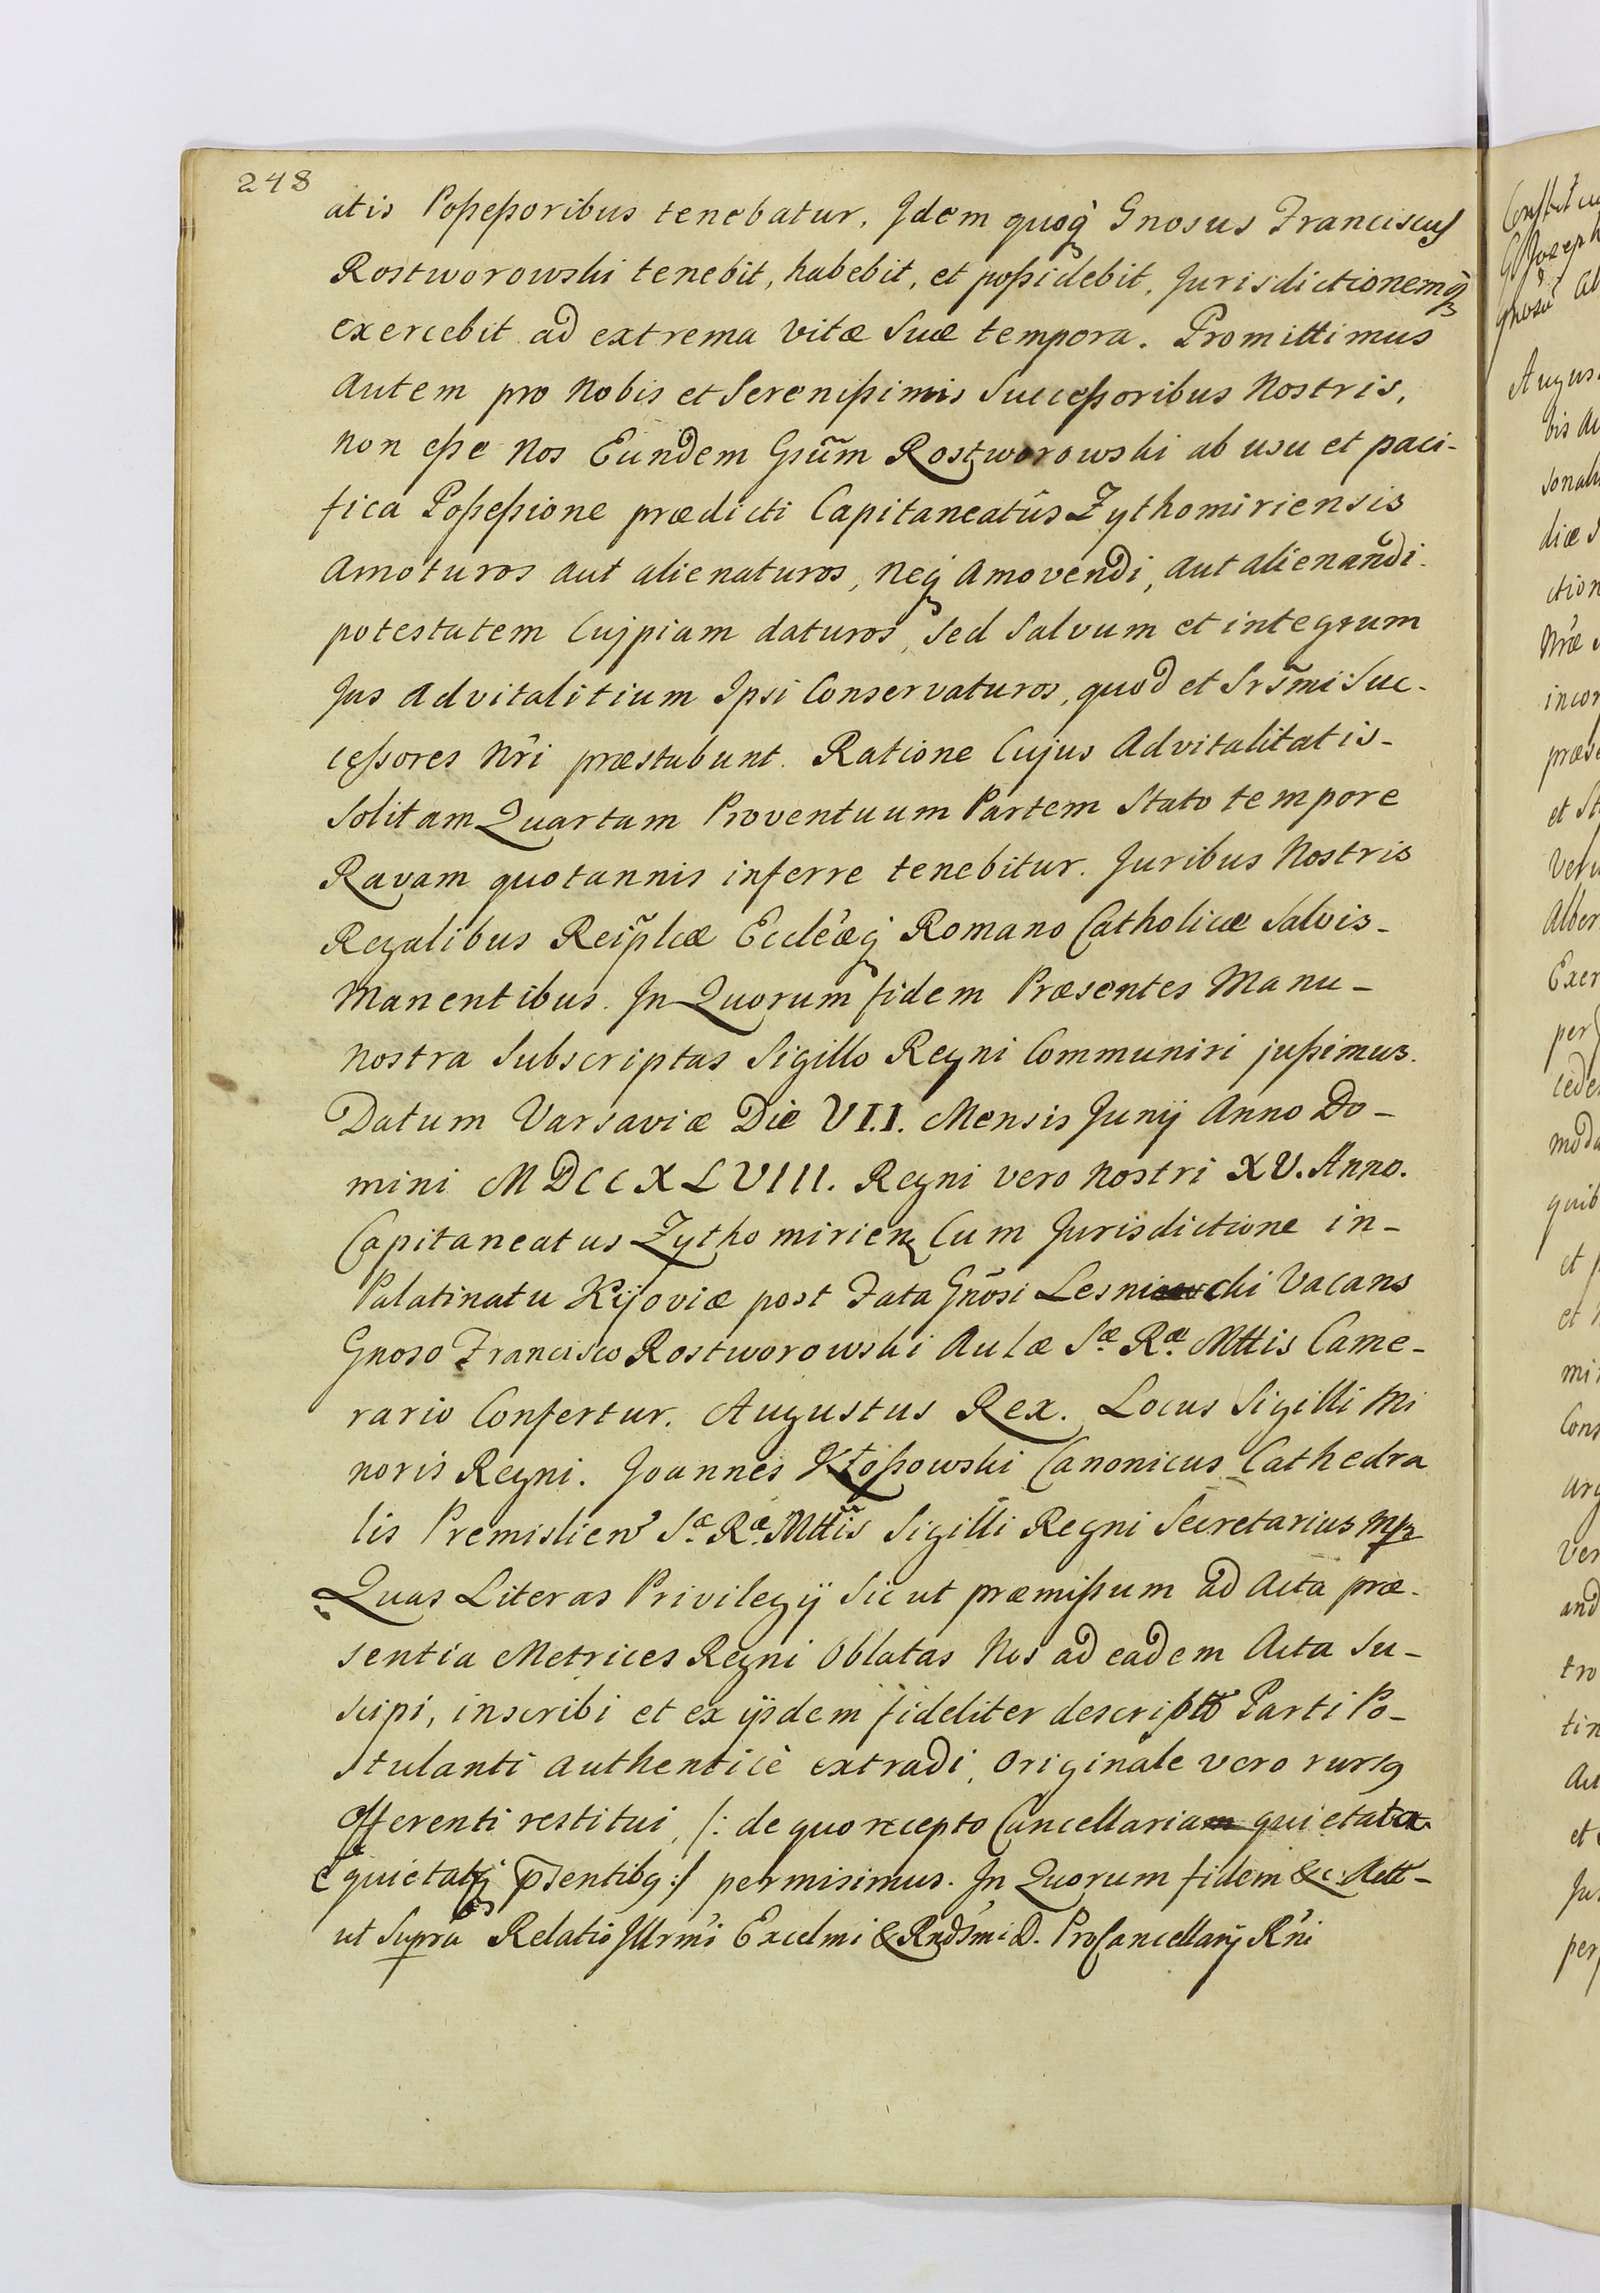 248
atis Poßeßoribus tenebatur, Idem quoq̀ Gnosus Franciscus
Rostworowski tenebit, habebit, et poßidebit, Jurisdictionemq̀
exercebit ad extrema vitæ Suæ tempora. Promittimus
autem pro Nobis et Serenißimis Succeßoribus Nostris,
non eße Nos Eundem Gsũm Rostworowski ab usu et paci-
fica Poßeßione prædicti Capitaneatûs Zythomiriensis
amoturos aut alienaturos, neq̀ Amovendi, aut alienandi
potestatem Cujpiam daturos, sed Salvum et integrum
Jus advitalitium Ipsi Conservaturos, quod et Srs̃mi Suc-
ceßores Nr̃i præstabunt. Ratione Cujus Advitalitatis-
Solitam Quartam Proventuum Partem Stato tempore
Ravam quotannis inferre tenebitur. Juribus Nostris
Regalibus Reip̃lcæ Eccleãeq̀ Romano Catholicæ Salvis-
Manentibus. In Quorum fidem Præsentes Manu-
nostra Subscriptas Sigillo Regni Communiri jußimus.
Datum Varsaviæ Die VII. Mensis Junij Anno Do-
mini MDCCXLVIII. Regni vero Nostri XV. Anno.
Capitaneatus Zythomirien Cum Jurisdictione in-
Palatinatu Kijoviæ post Fata Gnõsi Lesniowski Vacans
Gnoso Francisco Rostworowski Aulæ Sæ. Ræ. Mttis Came-
rario Confertur. Augustus Rex. Locus Sigilli Mi
noris Regni. Joannes Kłoßowski Canonicus Cathedra
lis Premislien Sæ. Ræ. Mttis Sigilli Regni Secretarius mp
Quas Literas Privilegij Sic ut præmißum ad Acta præ-
sentia Metrices Regni Oblatas Nos ad eadem Acta Su-
scipi, inscribi et ex ijsdem fideliter descripto Parti Po-
stulanti authenticè extradi, Originale vero rursq
offerenti restitui, /: de quo recepto Cancellariam quietata
e quietatq̀ p̃sentibq :/ permisimus. In Quorum fidem &c. Aett-
ut Suprà Relatio Illrmi Excelmi & Rnds̃mi D. ProCancellarij Rñi